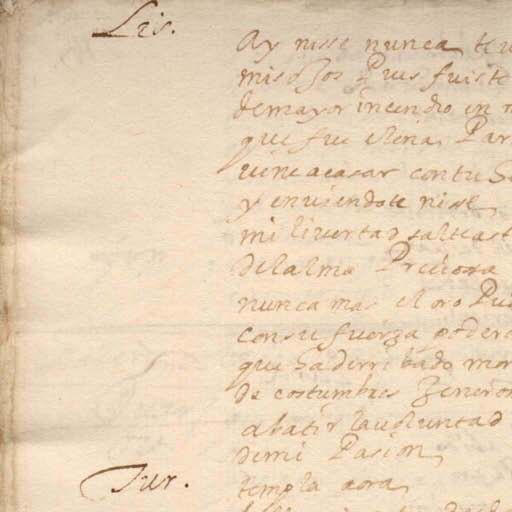 Lis.
Ay nise nunca te
mis ojos Pues fuiste
de mayor incendio en
que fue elena Par
vine a casar con tu
y en viendote nise
mi livertad salteast
del alma Preciosa
nunca mas el oro Pu
con su fuerza poder
que ha derribado mor
de costumbres
abatir la voluntad
de mi Pasion
Tur.
templa aora